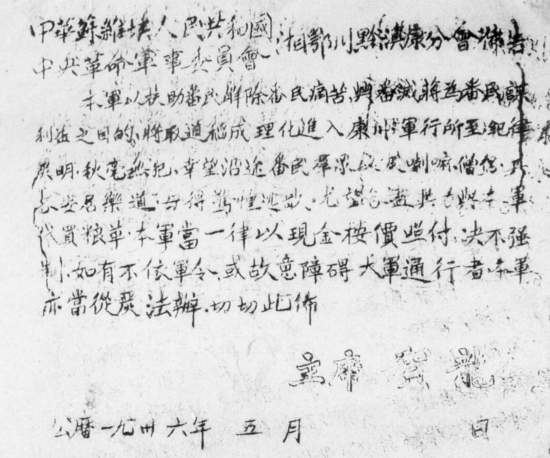 中華蘇維埃人民共和國
中央革命軍事委員會 湘鄂川黔滇康分會佈告
本軍以扶助番民解除番民痛苦興番滅蔣為番民謀
利益之目的,將取道稻成理化進入康川,軍行所至,紀律
嚴明,秋毫無犯.幸望沿途番民羣眾以及喇嘛僧侶,其
各安居樂道,毋得驚惶逃散.尤望各盡其力與本軍
代買粮草.本軍當一律以現金按價照付.決不强
制.如有不依軍令,或故意障碍大軍通行者.本軍
亦當從嚴法辦.切切此佈
主席 賀龍
公曆一九卅六年 五 月 日